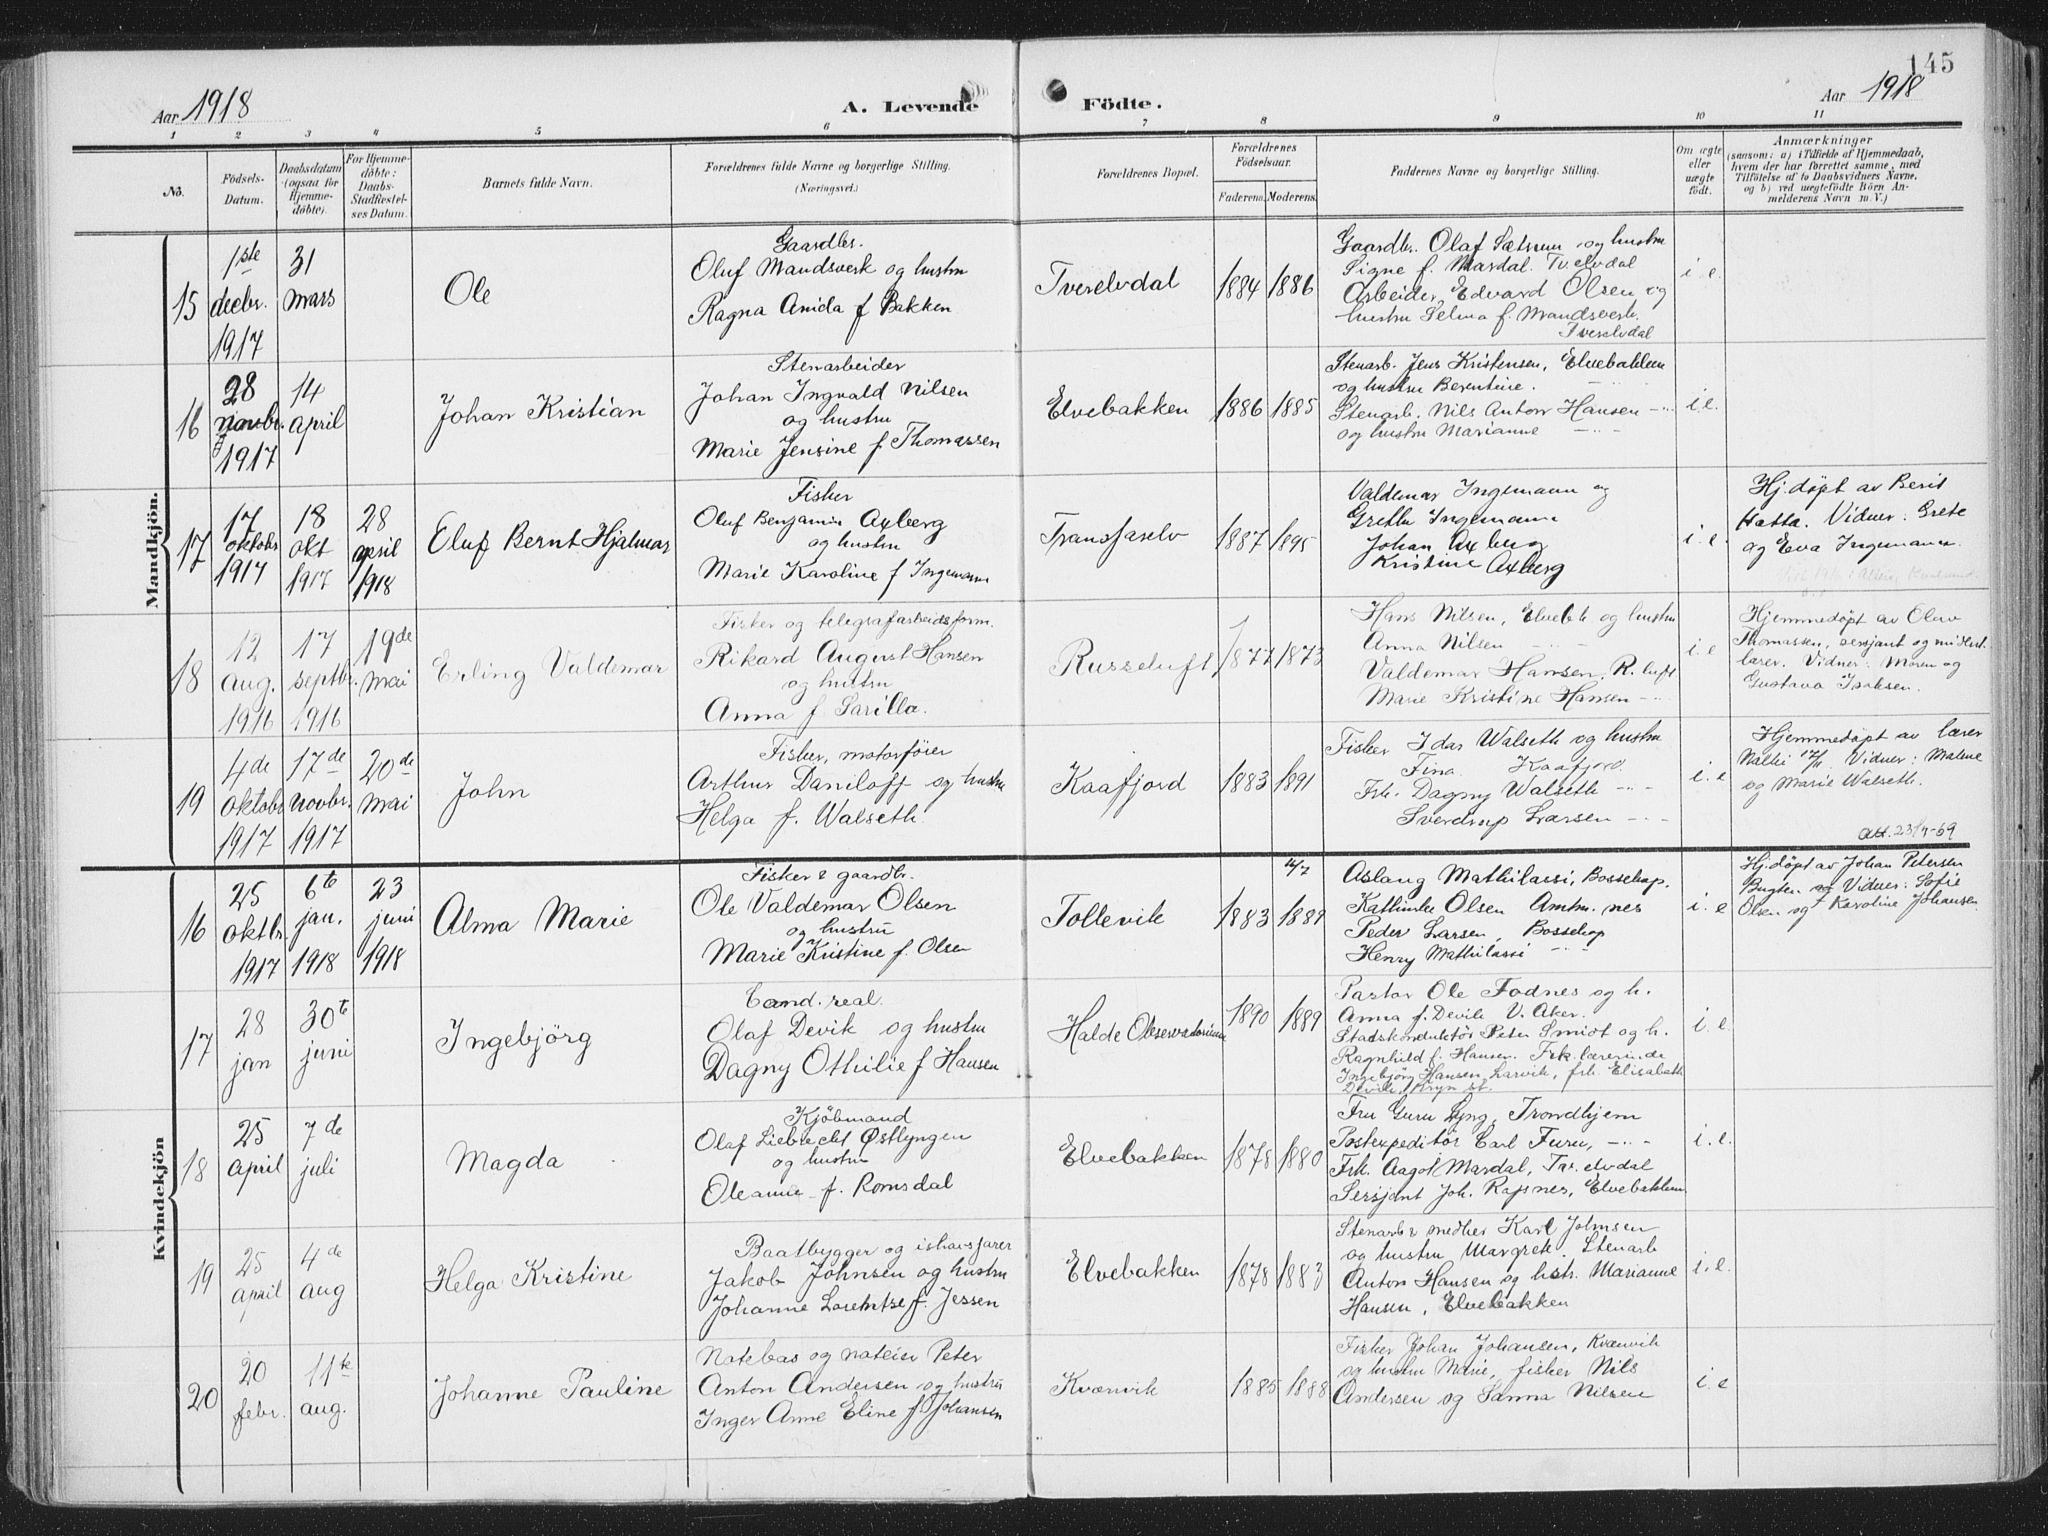 145
Aar 1918
A. Levende Födte.
Aar 1918
1 2 3 4 5 6 7 8 9 10 11
No.
Födsels-
Datum.
Daabsdatum
(ogsaa for
Hjemme-
døbte).
For Hjemme-
døbte:
Daabs-
Stadfæstel-
ses Datum.
Barnets fulde Navn.
Forældrenes fulde Navne og borgerlige Stilling.
(Næringsvei.)
Forældrenes Bopæl.
Forældrenes
Fødselsaar.
Faderens. Moderens.
Faddernes Navne og borgerlige Stilling.
Om ægte
eller
uægte
født.
Anmærkninger
(saasom: a) i Tilfælde af Hjemmedaab,
hvem der har forrettet samme, med
Tilføielse af to Daabsvidners Navne,
og b) ved uægtefødte Börn An-
melderens Navn m. V.)
Mandkjön.
15
1ste
decbr.
1917
31
mars
Ole
Gaardbr.
Oluf Mandsverk og hustru
Ragna Amida f Bakken
Tverelvdal
1884 1886
Gaardbr. Olaf Sætrum og hustru
Signe f. Mardal. Tv.elvdal
Arbeider Edvard Olsen og
hustru Selma f. Mandsverk.
Tverelvdal
i. e.
16
28
novbr.
1917
14
april
Johan Kristian
Stenarbeider
Johan Ingvald Nilsen
og hustru
Marie Jensine f Thomassen
Elvebakken
1886 1885
Stenarb. Jens Kristensen, Elvebakken
og hustru Berentine.
Stenarb. Nils Anton Hansen
og hustru Marianne
i. e.
17
17
oktobr
1917
18
okt
1917
28
april
1918
Eluf Bernt Hjalmar
Fisker
Oluf Benjamin Axberg
og hustru
Marie Karoline f Ingemann
Transfarelv
1887 1895
Valdemar Ingemann og
Grethe Ingemann
Johan Axberg
Kristine Axberg
i. e.
Hj.döpt av Berit
Hætta. Vidner: Grete
og Eva Ingemann.
18
12
aug.
1916
17
septbr.
1916
19de
mai
Erling Valdemar
Fisker og telegrafarbeidsform.
Rikard August Hansen
og hustru
Anna f Sarilla.
Russeluft
1877 1873
Hans Nilsen, Elvebk og hustru
Anna Nilsen
Valdemar Hansen, R. luft
Marie Kristine Hansen
i. e
Hjemmedöpt av Olav
Thomassen, sersjant og midlert.
lærer. Vidner: Maren og
Gustava Isaksen.
19
4de
oktobr
1917
17de
novbr.
1917
20de
mai
John
Fisker, motorförer
Arthur Daniloff og hustru
Helga f. Walseth.
Kaafjord
1883 1891
Fisker Idar Walseth og hustru
Fina Kaafjord.
Frk. Dagny Walseth
Sverdrup Larsen
i. e
Hjemmedöpt av lærer
17/11. Vidner: Malene
og Marie Walseth.
att. 23/4-69
Kvindekjön
16
25
oktbr.
1917
6te
jan.
1918
23
juni
1918
Alma Marie
Fisker & gaardbr.
Ole Valdemar Olsen
og hustru
Marie Kristine f. Olsen
Tollevik
1883 1889
Aslaug Mathilassi, Bossekop.
Kathinka Olsen Amtm.nes
Peder Larsen, Bossekop
Henry Mathilassi
i. e
Hj.döpt av Johan Petersen
Bugten og Vidner: Sofie
Olsen og Karoline Johansen.
17
28
jan
30te
juni
Ingebjörg
Cand. real.
Olaf Devik og hustru
Dagny Othilie f Hansen
Halde Observatorium
1890 1889
Pastor Ole Fodnes og h.
Anna f. Devik V. Aker.
Stadskonduktör Peter Smidt og h.
Ragnhild f. Hansen. Frk. lærerinde
Ingebjörg Hansen, Larvik, frk. Elisabeth
Devik,
i. e.
18
25
april
7de
juli
Magda
Kjöbmand
Olaf Liebrecht Östlyngen
og hustru
Oleanna f. Romsdal
Elvebakken
1878 1880
Fru Guru Lyng, Trondhjem
Postexpeditör Carl Furu,
Frk. Aagot Mardal, Tv. elvdal
Sersjant Joh. Rapsnes, Elvebakken
i. e.
19
25
april
4de
aug
Helga Kristine
Baatbygger og ishavsfarer
Jakob Johnsen og hustru
Johanne Lorentze f. Jessen
Elvebakken
1878 1883
Stenarb & snedker Karl Johnsen
og hustru Margrete. Stenarb
Anton Hansen og hstr. Marianne
Hansen, Elvebakken
i. e.
20
20
febr.
11te
aug.
Johanne Pauline
Notebas og noteier Peter
Anton Andersen og hustru
Inger Anne Eline f Johansen
Kvænvik
1885 1888
Fisker Johan Johansen, Kvænvik
og hustru Marie, fisker Nils
Andersen og Sanna Nilsen
i. e